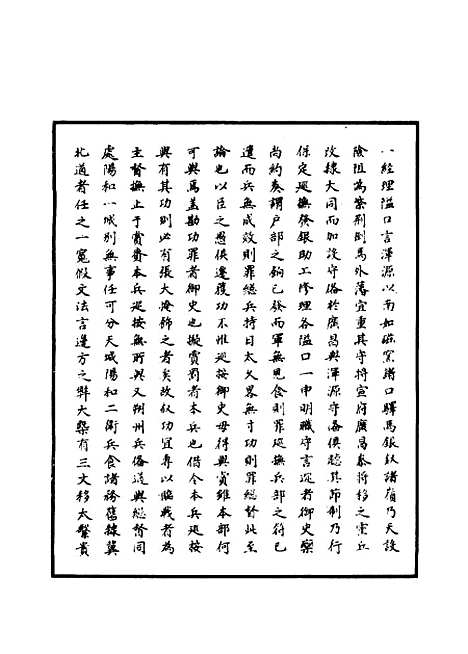 一經理隘口言渾源以南如磁窯諸口驛馬銀釵諸嶺乃天設
險阻為紫荆倒馬外藩宜重其守將宣府廣昌參將移之靈丘
改隸大同而加設守俻於廣昌與渾源守俻俱聽其節制乃行
保定廵撫發銀助工修理各隘口一申明職守言邇者御史欒
尚約奏謂戶部之餉已發而軍無見食則罪廵撫兵部之符已
遣而兵無成效則罪總兵持日太久畧無寸功則罪總督此至
論也以臣之愚俟邊獲功不惟廵按御史毋得與賞雖本部何
可與焉盖勘功罪者御史也擬賞罰者本兵也借令本兵廵按
與有其功則必有張大掩飾之者矣故叙功宜專以臨戰者為
主督撫止于賞賚本兵廵按無所與又朔州兵俻道與總督同
處陽和一城别無事任可分天城陽和二衛兵食諸務舊隸冀
北道者任之一寬假文法言邊方之弊大槩有三文移太繁責